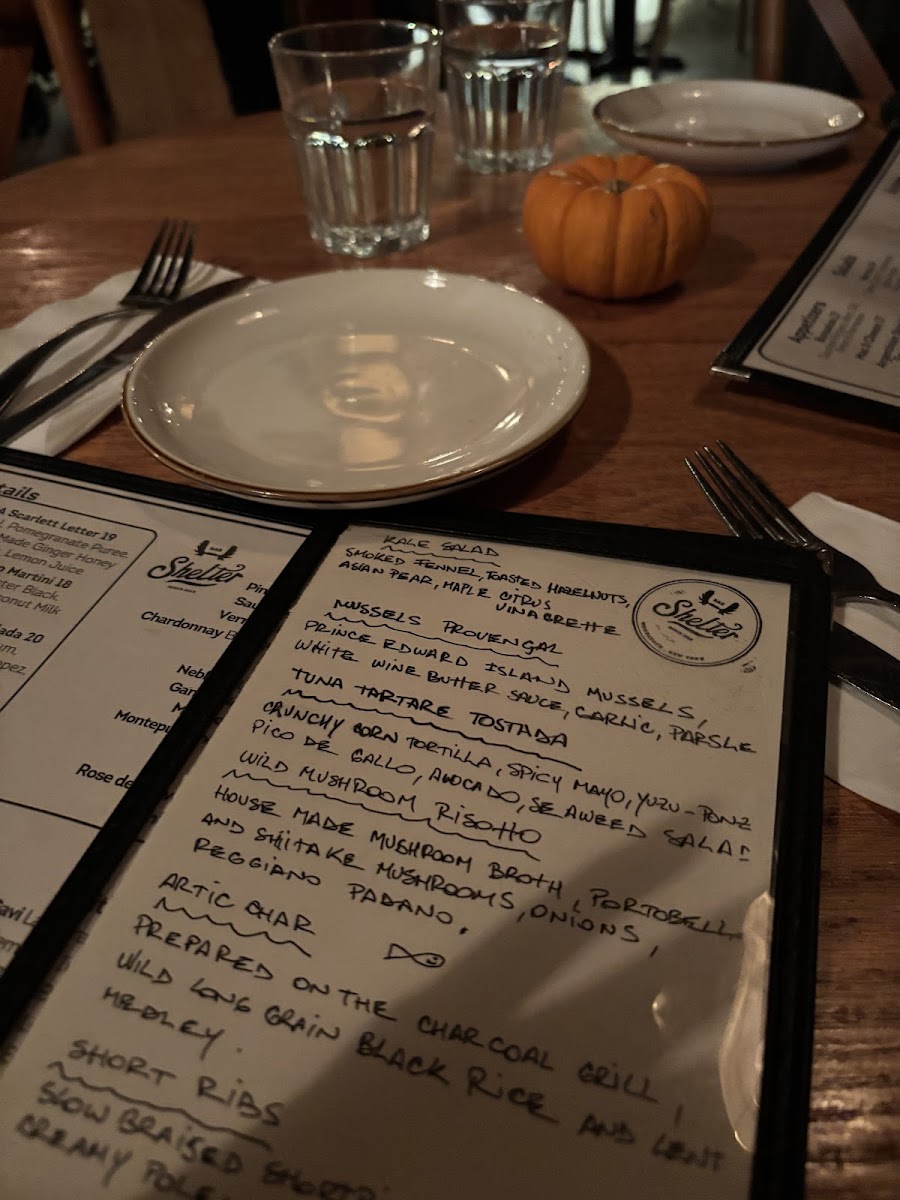 tails
A Scarlett Letter 19
Pomegranate Puree,
Made Ginger Honey
Lemon Juice
Martini 18
Black,
Milk
20
Shelter
Pin
Sau
Ver
Chardonnay B
Neb
Gar
M
Montepu
Rose de
Gavi L
KALE SALAD
SMOKED FENNEL, TOASTED HAZELNUTS,
ASIAN PEAR, MAPLE CITRUS
VINAGRETTE
MUSSELS PROVENGAL
PRINCE EDWARD ISLAND MUSSELS,
WHITE WINE BUTTER SAUCE, GARLIC, PARSLE
TUNA TARTARE TOSTADA
CRUNCHY CORN TORTILLA, SPICY MAYO, YUZU-PONZ
PICO DE GALLO, AVOCADO, SEAWEED SALAD
WILD MUSHROOM RISOTTO
HOUSE MADE MUSHROOM BROTH, PORTOBELLA
AND SHITAKE MUSHROOMS, ONIONS,
REGGIANO PADANO.
ARTIC CHAR
PREPARED ON THE CHARCOAL GRILL,
WILD LONG GRAIN BLACK RICE AND LENT
MEDLEY.
SHORT RIBS
SLOW BRAISED SHORT
CREAMY POLE
Shelter
Appetizers
Salads